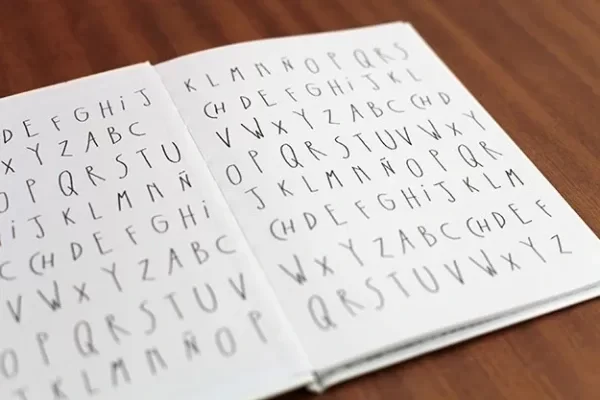 D E F G H i J
X Y Z A B C
O P Q R S T U
i J K L M N Ñ
C CH D E F G H i
V W X Y Z A B C
O P Q R S T U V
K L M N Ñ O P
K L M N Ñ O P Q R S
CH D E F G H i J K L
V W X Y Z A B C CH D
O P Q R S T U V W X Y
J K L M N Ñ O P Q R
CH D E F G H i J K L M
W X Y Z A B C CH D E F
Q R S T U V W X Y Z